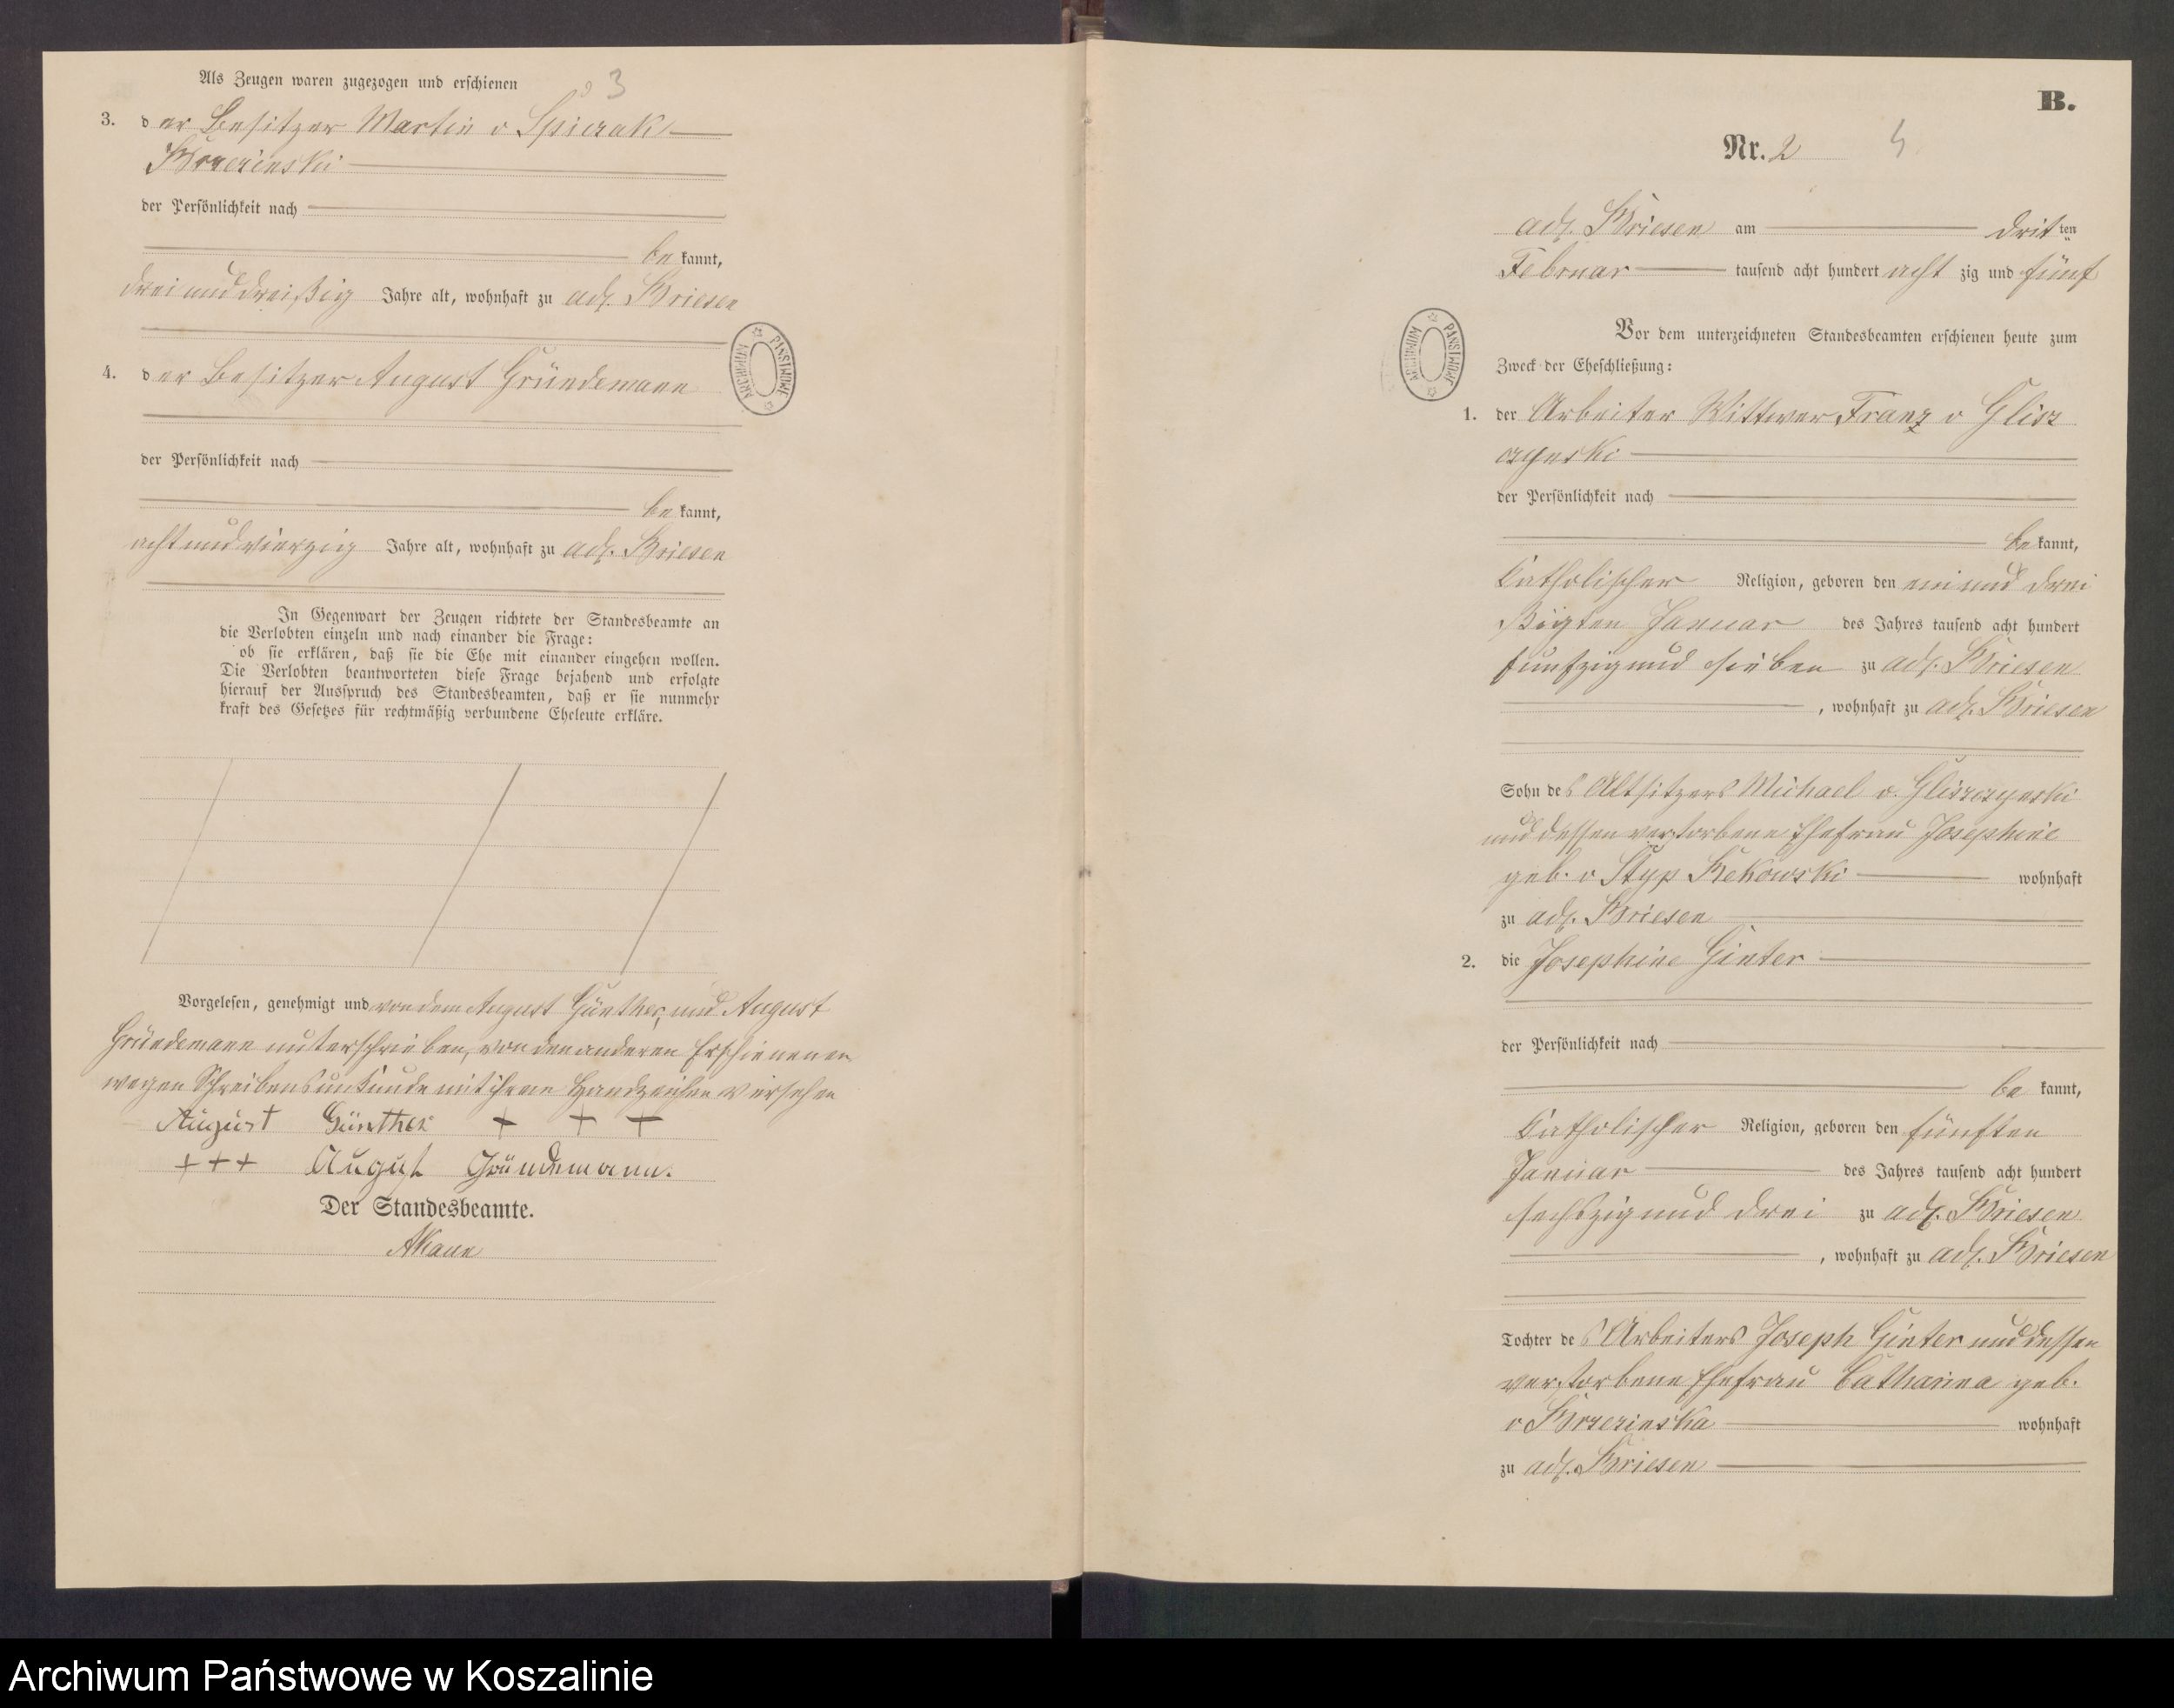 Als Zeugen waren zugezogen und erschienen
3
3. der Besitzer Martin v Spiczak
Brzezinski
der Persönlichkeit nach
be kannt,
drei und dreißig Jahre alt, wohnhaft zu adl. Briesen
4. der Besitzer August Gründemann
der Persönlichkeit nach
be kannt,
acht und vierzig Jahre alt, wohnhaft zu adl. Briesen
In Gegenwart der Zeugen richtete der Standesbeamte an
die Verlobten einzeln und nach einander die Frage:
ob sie erklären, daß sie die Ehe mit einander eingehen wollen.
Die Verlobten beantworteten diese Frage bejahend und erfolgte
hierauf der Ausspruch des Standesbeamten, daß er sie nunmehr
kraft des Gesetzes für rechtmäßig verbundene Eheleute erkläre.
Vorgelesen, genehmigt und von dem August Günther, und August
Gründemann unterschrieben, von den anderen Erschienenen
wegen Schreibensunkunde mit ihren Handzeichen versehen
August Günther + + +
+++ August Gründemann.
Der Standesbeamte.
ARCHIWUM PAŃSTWOWE
B.
Nr. 2 4
adl. Briesen am dritten
Februar tausend acht hundert acht zig und fünf
Vor dem unterzeichneten Standesbeamten erschienen heute zum
Zweck der Eheschließung:
ARCHIWUM PAŃSTWOWE
1. der Arbeiter Wittwer Franz v Glisz
czynski
der Persönlichkeit nach
be kannt,
katholischer Religion, geboren den ein und drei
ßigten Januar des Jahres tausend acht hundert
fünfzig und sieben zu adl. Briesen
, wohnhaft zu adl. Briesen
Sohn des Altsitzers Michael v. Gliszczynski
und dessen verstorbene Ehefrau Josephine
geb. v Styp Rekowski wohnhaft
zu adl. Briesen
2. die Josephine Ginter
der Persönlichkeit nach
be kannt,
katholischer Religion, geboren den fünften
Januar des Jahres tausend acht hundert
sechszig und drei zu adl. Briesen
, wohnhaft zu adl. Briesen
Tochter des Arbeiters Joseph Ginter und dessen
verstorbene Ehefrau Catharina geb.
v Brzezinska wohnhaft
zu adl. Briesen
Archiwum Państwowe w Koszalinie